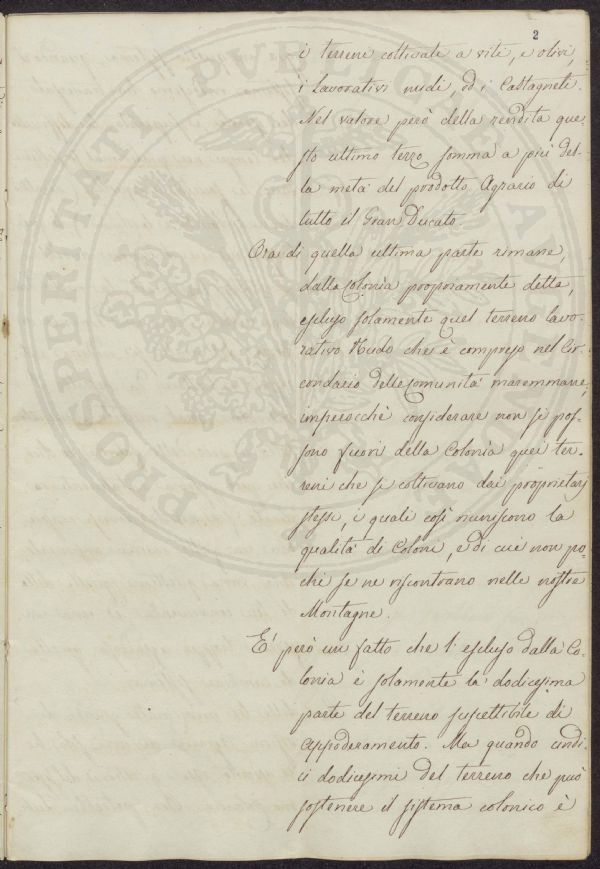 2
i terreni coltivati a viti, e olivi,
i Lavorativi nudi, ed i Castagneti.
Nel valore però della rendita que-
sto ultimo terzo somma a più del-
la metà del prodotto Agrario di
tutto il Gran Ducato.
Ora di quella ultima parte rimane,
dalla Colonia propriamente detta,
escluso solamente quel terreno lavo-
rativo Nudo che è compreso nel Cir-
condario delle Comunità maremmane,
imperocchè considerare non si pos-
sono fuori della Colonia quei ter-
reni che si coltivano dai proprietarj
stessi, i quali così riuniscono la
qualità di Coloni, e di cui non po-
chi se ne riscontrano nelle nostre
Montagne.
E' però un fatto che l'escluso dalla Co-
lonia è solamente la dodicesima
parte del terreno suscettibile di
Appoderamento. Ma quando undi-
ci dodicesimi del terreno che può
sostenere il sistema colonico è
PROSPERITATI PUBLICAE A